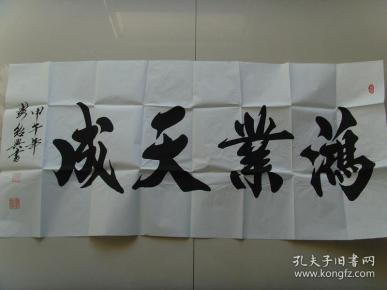 鴻業天成
甲午年
孔夫子旧书网
www.kongfz.com